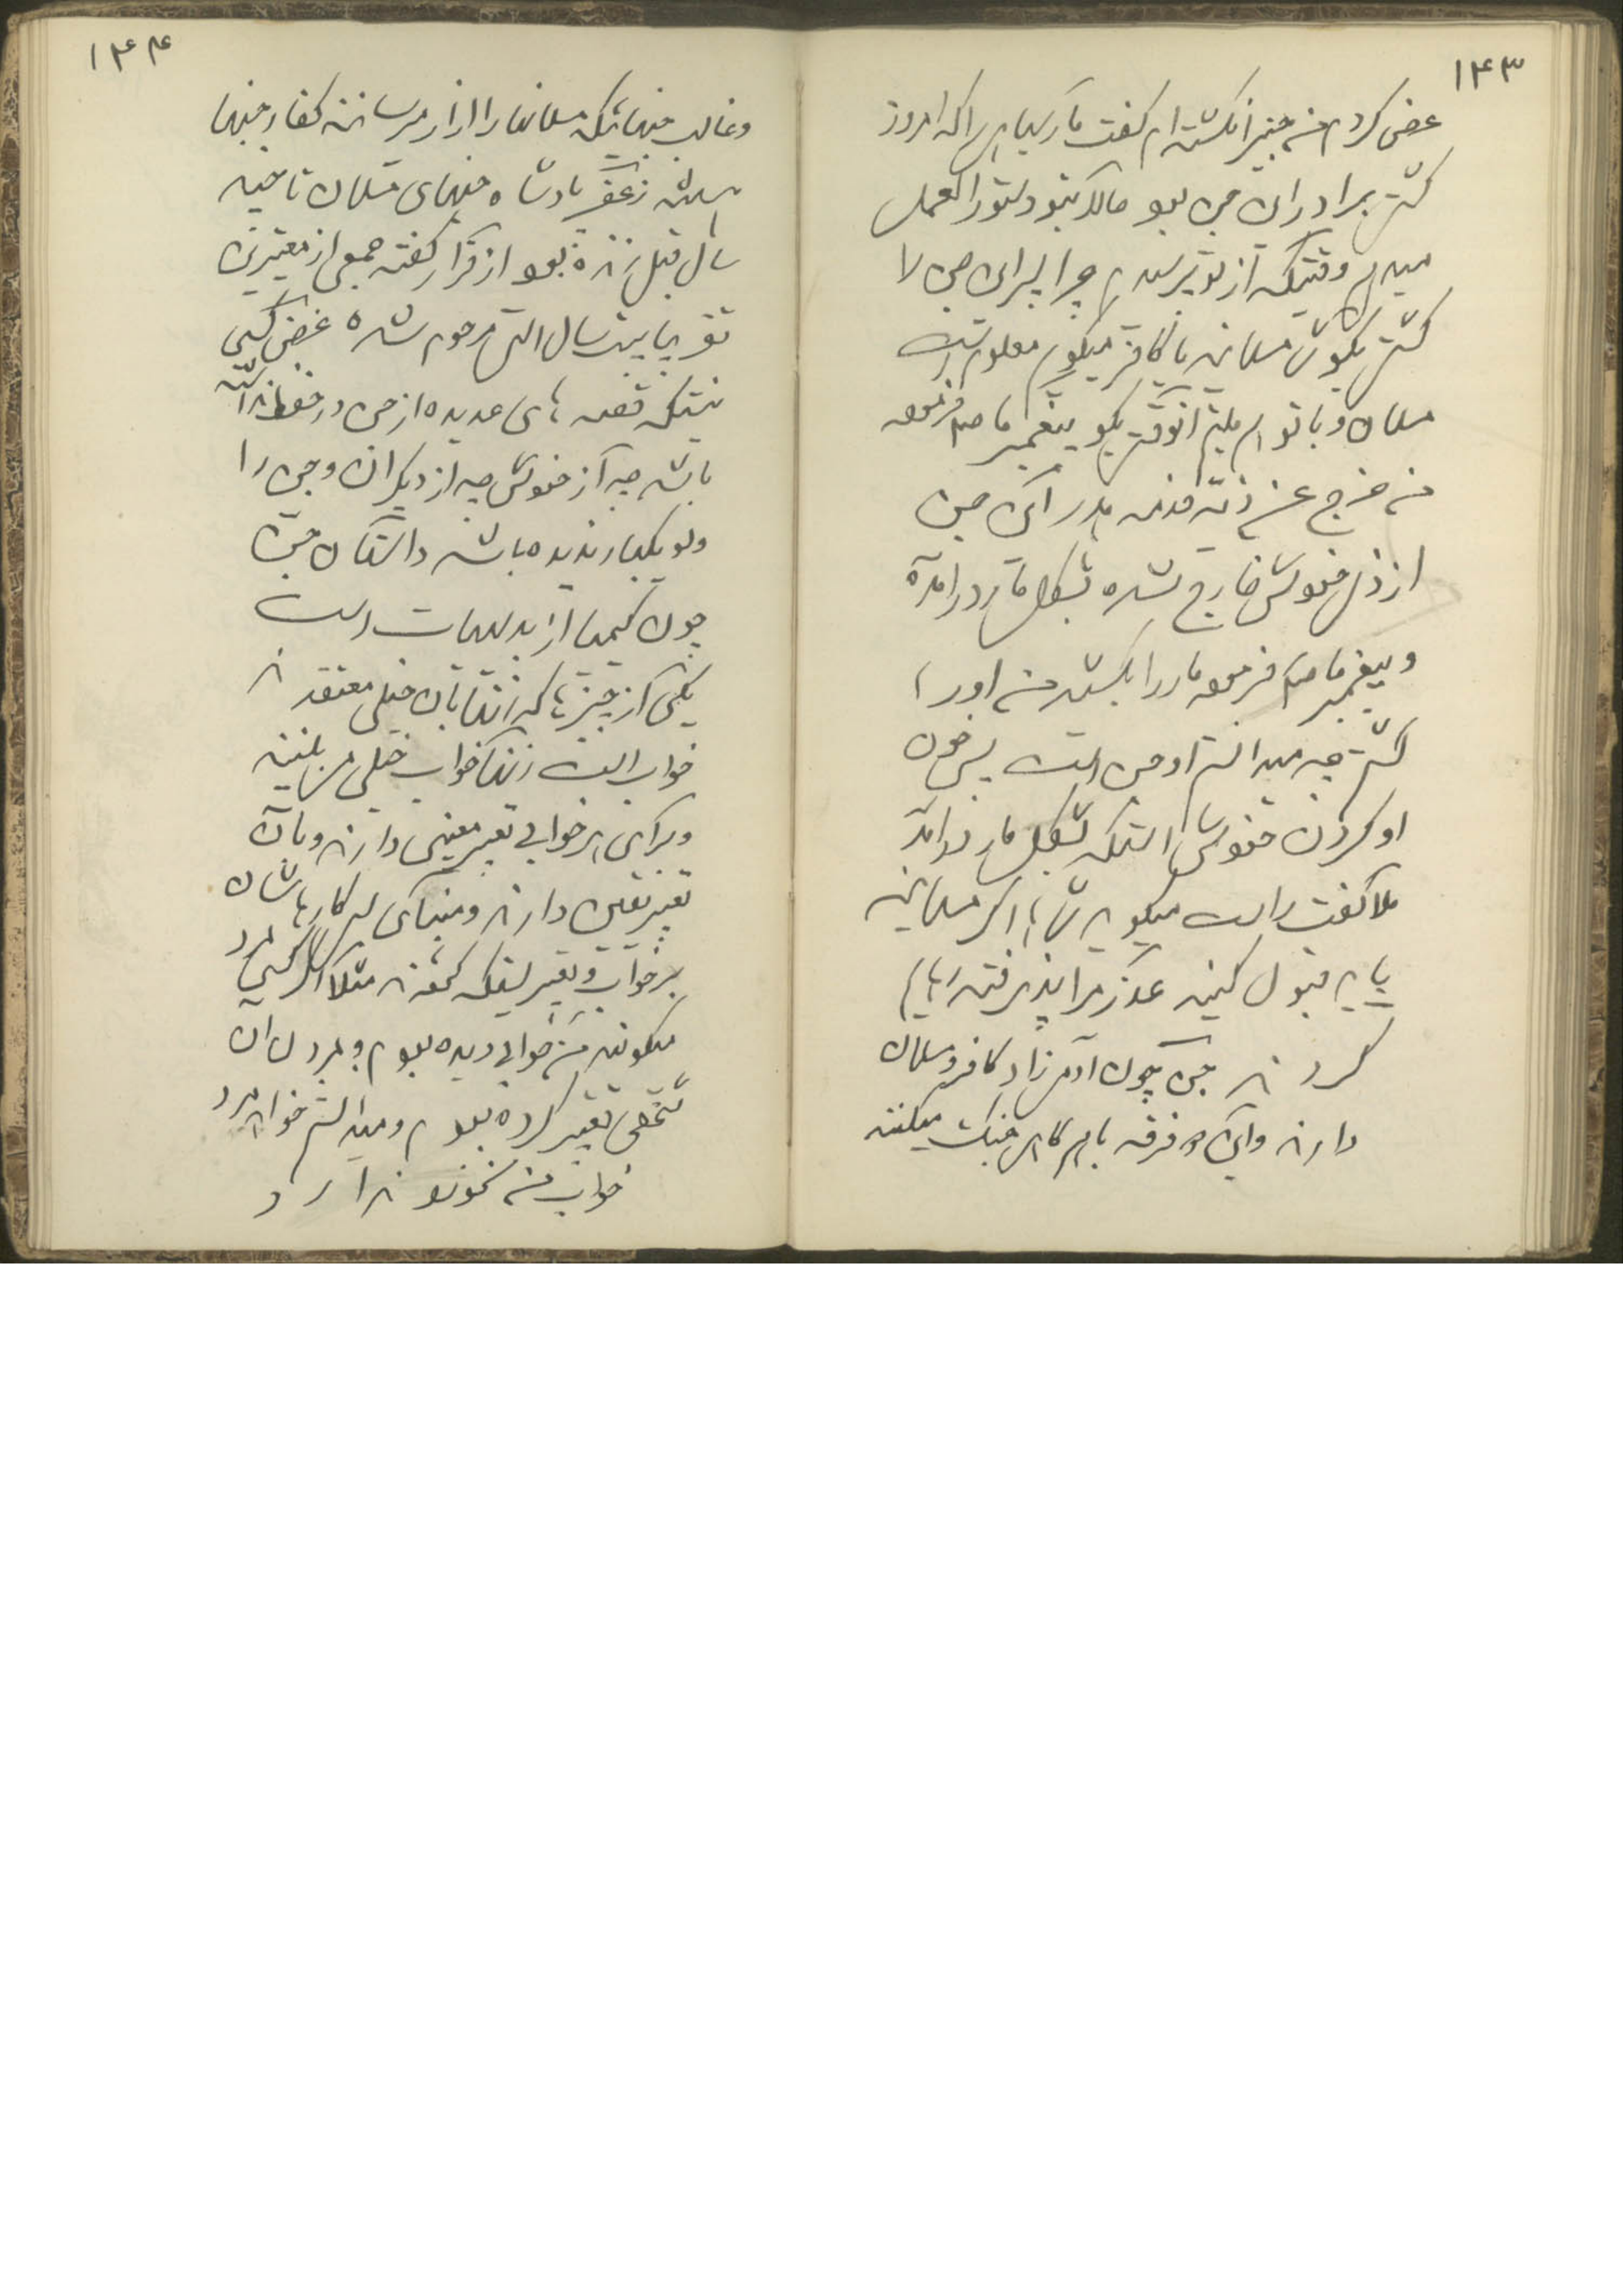 ۱۴۳
عرض کردم من جنیرا نکشته‌ام گفت مار سیاهی را که امروز
کشتی برادر این جن بود حالا بتو دستورالعمل
میدهم وقتیکه از تو پرسیدم چرا پسر این جن را
کشتی بگو من مسلمانم یا کافر میگویم معلوم است
مسلمان و با تو هم ملتم آنوقت بگو پیغمبر ما صلعم فرموده
من خرج عن زیّه فدمه هدر این جن
از زی خودش خارج شده بشکل مار درآمده
و پیغمبر ما صلعم فرموده مار را بکشید من او را
کشتم چه میدانستم او جن است پس خون
او گردن خودش است که بشکل مار درآمد
ملا گفت راست میگوید شاها اگر مسلمانید
باید قبول کنید عذر مرا پذیرفته رهایم
کردند جن چون آدمیزاد کافر و مسلمان
دارند و این دو فرقه باهم گاهی جنگ میکنند
۱۴۴
و غالب جنهائیکه مسلمانها را آزار میرسانند کفار جنها
میباشند زعفر پادشاه جنهای مسلمان تا چند
سال قبل زنده بود از قرار گفته جمعی از معتبرین
تقریبا بیست سال است مرحوم شده غرض کسی
نیست که قصه های عدیده از جن در حفظ نداشته
باشد چه از خودش چه از دیگران و جن را
ولو یکبار ندیده باشد داستان جن
چون کیمیا از بدیهیات است
یکی از چیزها که زنها بآن خیلی معتقدند
خواب است زنها خواب خیلی می بینند
و برای هر خوابی تعبیر معینی دارند و بآن
تعبیر یقین دارند و مبنای هر کارهاشان
بر خواب و تعبیر است که کرده‌اند مثلا اگر کسی مرد
میگویند من خوابی دیده بودم و بمردن آن
شخص تعبیر کرده بودم و میدانستم خواهد مرد
خواب من نخورد ندارد